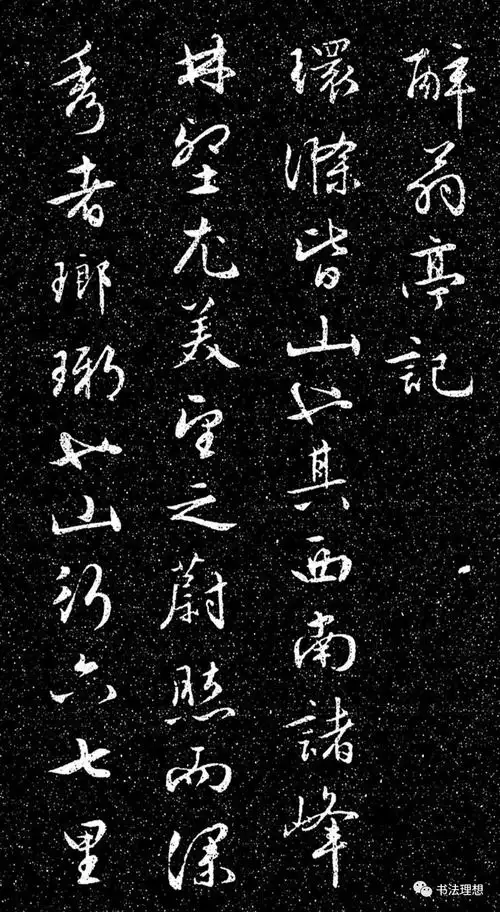 醉翁亭記
環滁皆山也其西南諸峰
林壑尤美望之蔚然而深
秀者瑯琊也山行六七里
书法理想